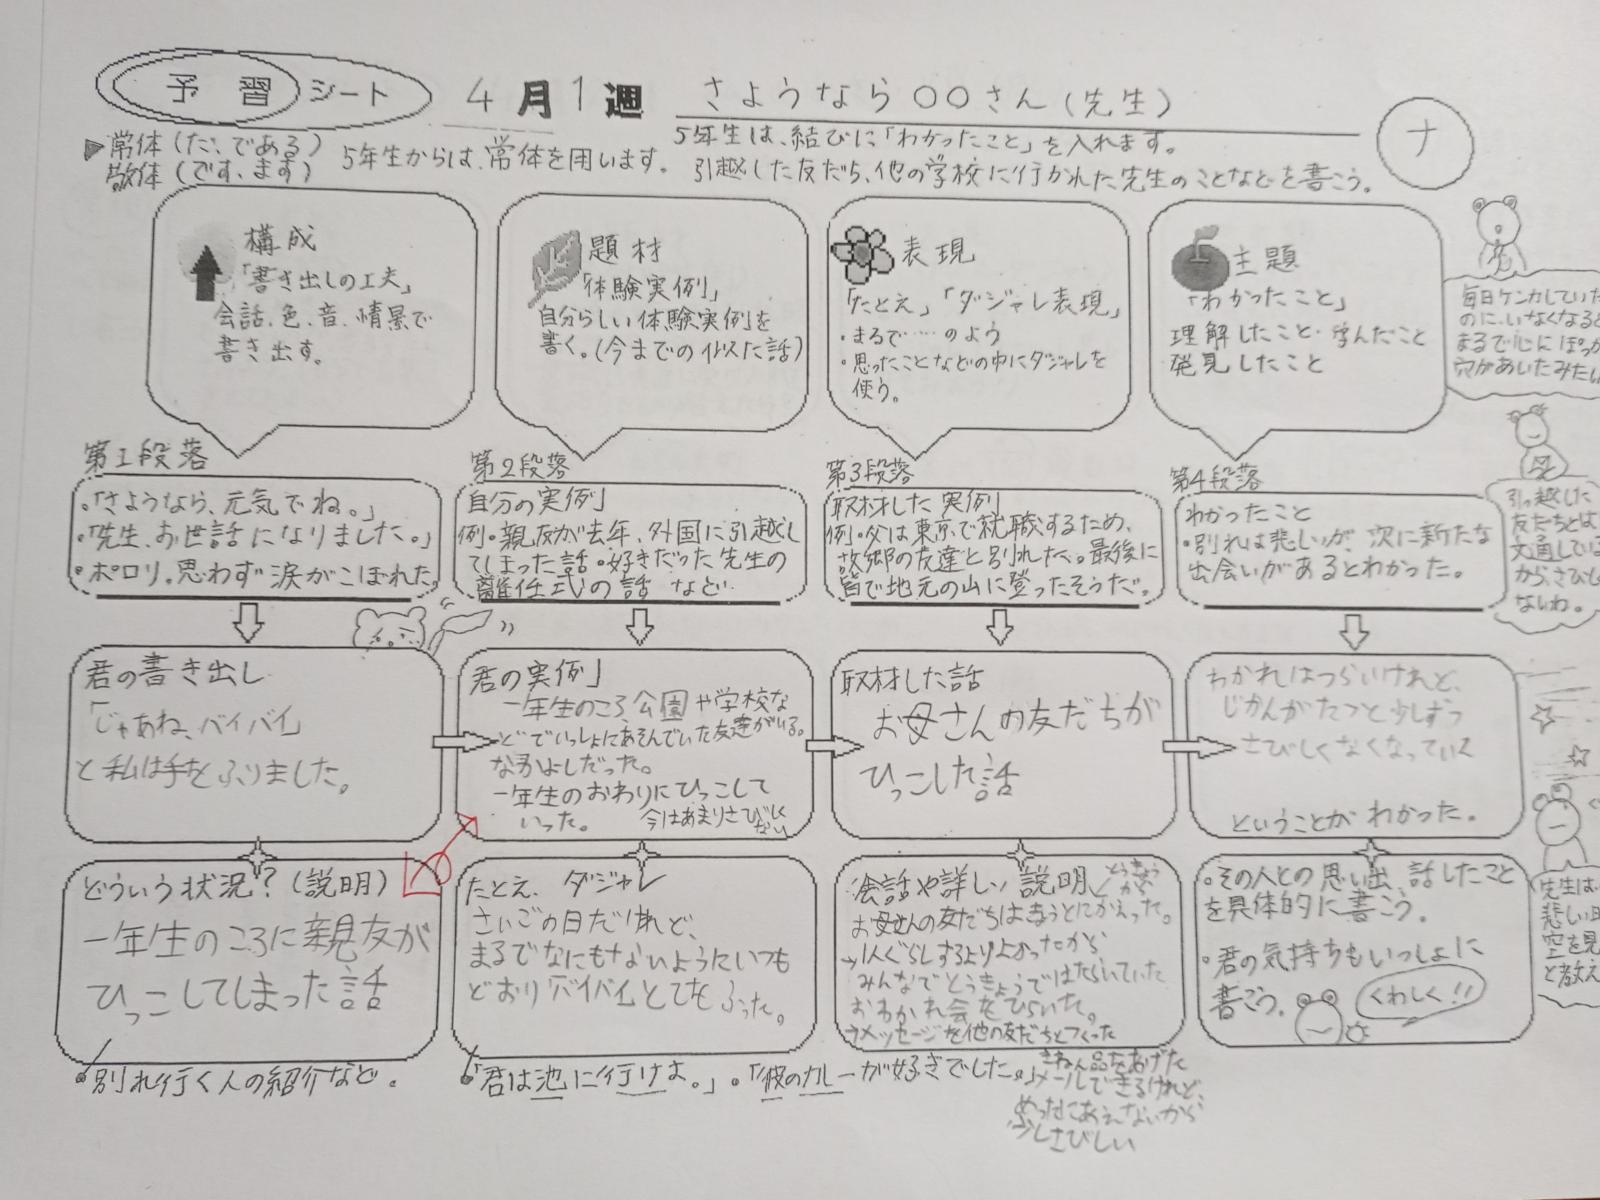 予習シート 4月1週 さようなら○○さん(先生)
ナ
▶常体(だ、である)
敬体(です、ます)
5年生からは、常体を用います。
5年生は、結びに「わかったこと」を入れます。
引越した友だち、他の学校に行かれた先生のことなどを書こう。
構成
「書き出しの工夫」
会話、色、音、情景で
書き出す。
題材
「体験実例」
自分らしい体験実例を
書く。(今までの似た話)
表現
「たとえ」「ダジャレ表現」
・まるで……のよう
・思ったことなどの中にダジャレを
使う。
主題
「わかったこと」
理解したこと・学んだこと
発見したこと
毎日ケンカしていた
のに、いなくなると
まるで心にぽっか
穴があいたみたい
第1段落
・「さようなら、元気でね。」
・「先生、お世話になりました。」
・ポロリ。思わず涙がこぼれた。
第2段落
自分の実例」
例・親友が去年、外国に引越し
てしまった話・好きだった先生の
離任式の話 など
第3段落
取材した実例」
例・父は東京で就職するため、
故郷の友達と別れた。最後に
皆で地元の山に登ったそうだ。
第4段落
わかったこと
・別れは悲しいが、次に新たな
出会いがあるとわかった。
引っ越した
友だちとは
文通している
から、さびし
ないわ。
君の書き出し
「じゃあね、バイバイ」
と私は手をふりました。
君の実例」
一年生のころ公園や学校な
どでいっしょにあそんでいた友達がいる。
なかよしだった。
一年生のおわりにひっこして
いった。
今はあまりさびしく
ない
取材した話
お母さんの友だちが
ひっこした話
わかれはつらいけれど、
じかんがたつと少しずつ
さびしくなくなっていく
ということがわかった。
どういう状況?(説明)
一年生のころに親友が
ひっこしてしまった話
たとえ、ダジャレ
さいごの日だけれど、
まるでなにもないようにいつも
どおり「バイバイ」と手をふった。
会話や詳しい説明
とうきょう
から
お母さんの友だちは
にかえった。
1人ぐらしするよりよかったから
みんなでとうきょうではたらいていた
おわかれ会をひらいた。
メッセージを他の友だちとつくった
きねん品をあげた
メールできるけれど、
めったにあえないから
少しさびしい
・その人との思い出、話したこと
を具体的に書こう。
・君の気持ちもいっしょに
書こう。
くわしく!!
先生は
悲しい日
空を見
と教え
・別れ行く人の紹介など。
・「君は池に行けよ。」・「彼のカレーが好きでした。」